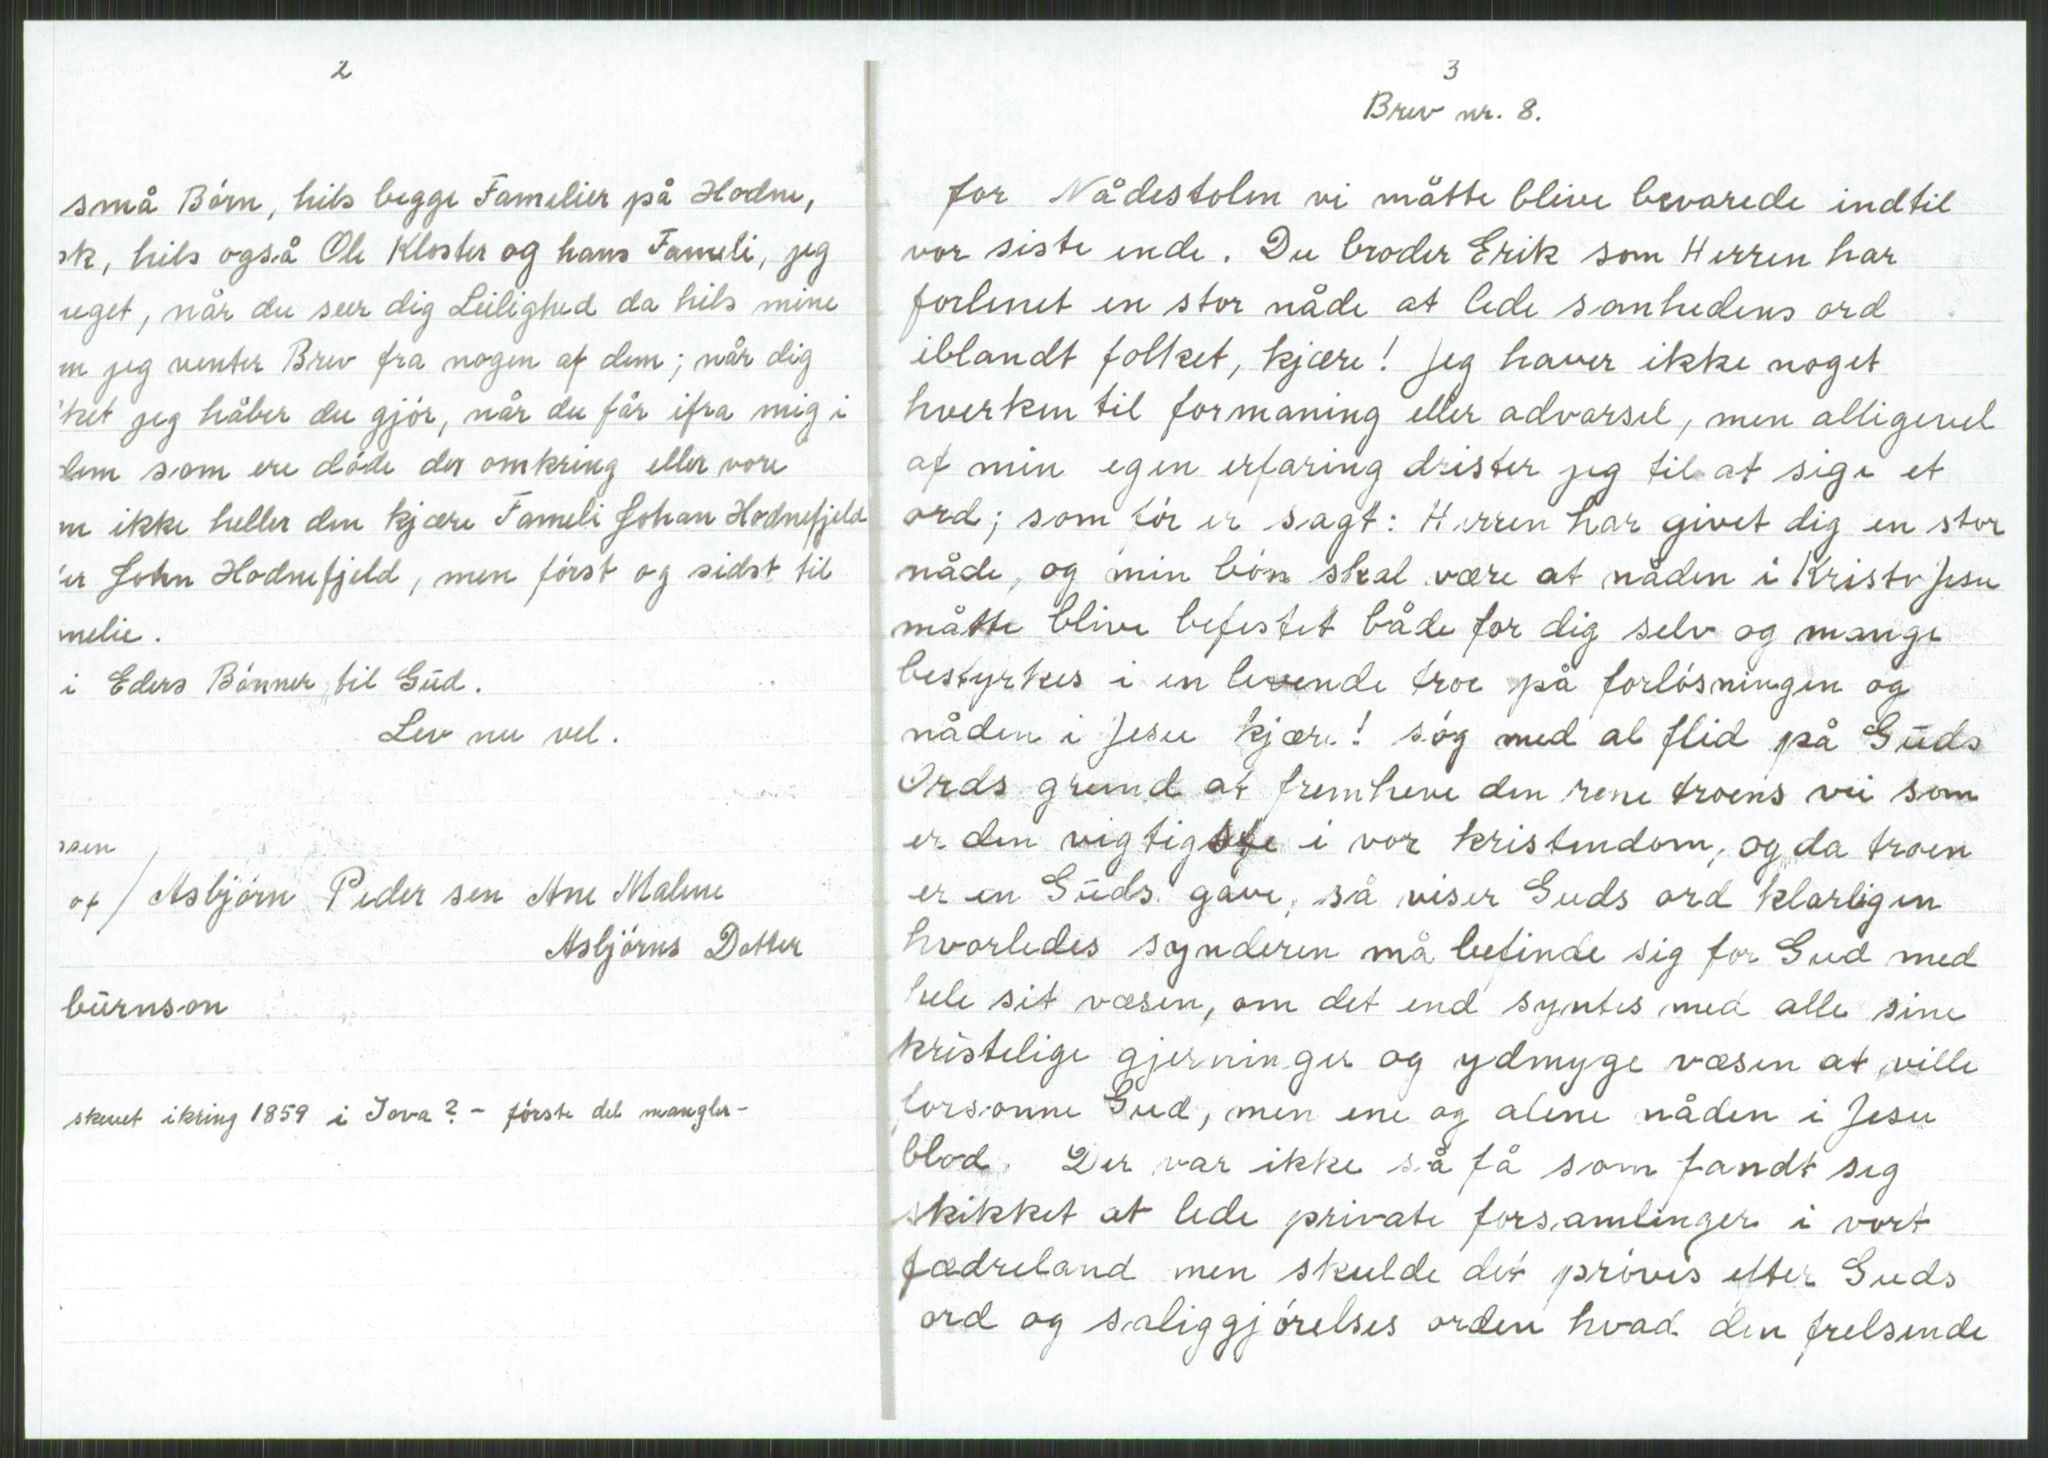 2
små Börn, hils begge Famelier på Hodne,
sk, hils også Ole Kloster og hans Fameli, jeg
uget, når du seer dig Leilighed da hils mine
m jeg venter Brev fra nogen af dem; når dig
ket jeg håber du gjör, når du får ifra mig i
dem som ere döde der omkring eller vore
m ikke heller den kjære Fameli Johan Hodnefjeld
er John Hodnefjeld, men först og sidst til
melie.
i Eders Bönner til Gud.
Lev nu vel.
ssen
af / Asbjörn Peder sen Ane Malene
Asbjörns Datter
burnson
skrevet ikring 1859 i Iova? - förste del mangler -
3
Brev nr. 8.
for Nådestolen vi måtte blive bevarede indtil
vor siste ende. Du broder Erik som Herren har
forlenet en stor nåde at lede sanhedens ord
iblandt folket, kjære! Jeg haver ikke noget
hverken til formaning eller advarsel, men alligevel
af min egen erfaring drister jeg til at sige et
ord; som för er sagt: Herren har givet dig en stor
nåde, og min bön skal være at nåden i Kristo Jesu
måtte blive befestet både for dig selv og mange
bestyrkes i en levende troe på forlösningen og
nåden i Jesu kjære! sög med al flid på Guds
Ords grund at fremheve den rene troens vei som
er den vigtigste i vor kristendom, og da troen
er en Guds gave, så viser Guds ord klarligen
hvorledes synderen må befinde sig for Gud med
hele sit væsen, om det end syntes med alle sine
kristelige gjerninger og ydmyge væsen at ville
forsonne Gud, men ene og alene nåden i Jesu
blod. Der var ikke så få som fandt seg
skikket at lede private forsamlinger i vort
fædreland men skulde det pröves efter Guds
ord og saliggjörelses orden hvad den frelsende